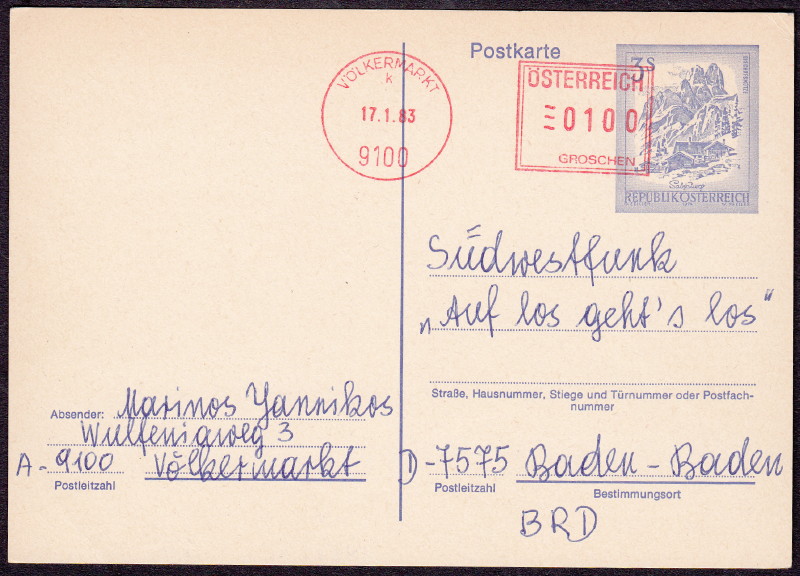 Postkarte
VÖLKERMARKT
k
17.1.83
9100
ÖSTERREICH
0100
GROSCHEN
3 S
REPUBLIK ÖSTERREICH
Südwestfunk
„Auf los geht's los"
Straße, Hausnummer, Stiege und Türnummer oder Postfach-
nummer
Absender: Marinos Yannikos
Wulfeniaweg 3
A-9100 Völkermarkt
Postleitzahl
D-7575 Baden-Baden
Postleitzahl Bestimmungsort
BRD